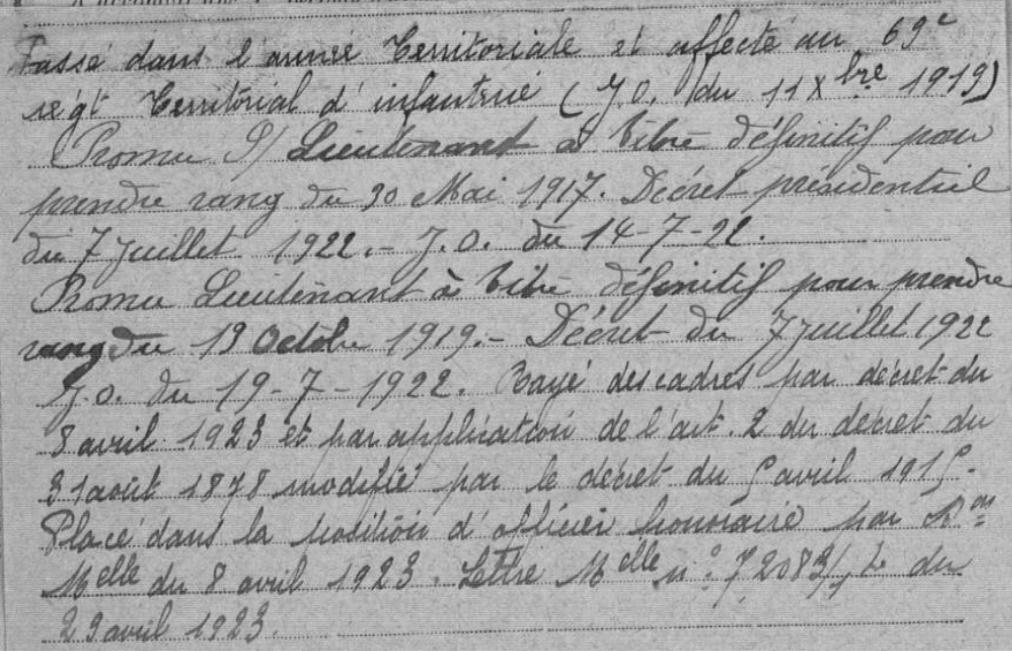 Passé dans l'armée Territoriale et affecté au 69e
régt Territorial d'infanterie (J.O. du 11 Xbre 1919)
Promu S/ Lieutenant à titre définitif pour
prendre rang du 30 Mai 1917. Décret présidentiel
du 7 Juillet 1922. - J.O. du 14-7-22.
Promu Lieutenant à titre définitif pour prendre
rang du 19 Octobre 1919. - Décret du 7 juillet 1922
J.O. du 19-7-1922. Rayé des cadres par décret du
8 avril 1923 et par application de l'art. 2 du décret du
31 août 1878 modifié par le décret du 5 avril 1915.
Placé dans la position d'officier honoraire par Don
Melle du 8 avril 1923. Lettre Melle n° du
29 avril 1923.